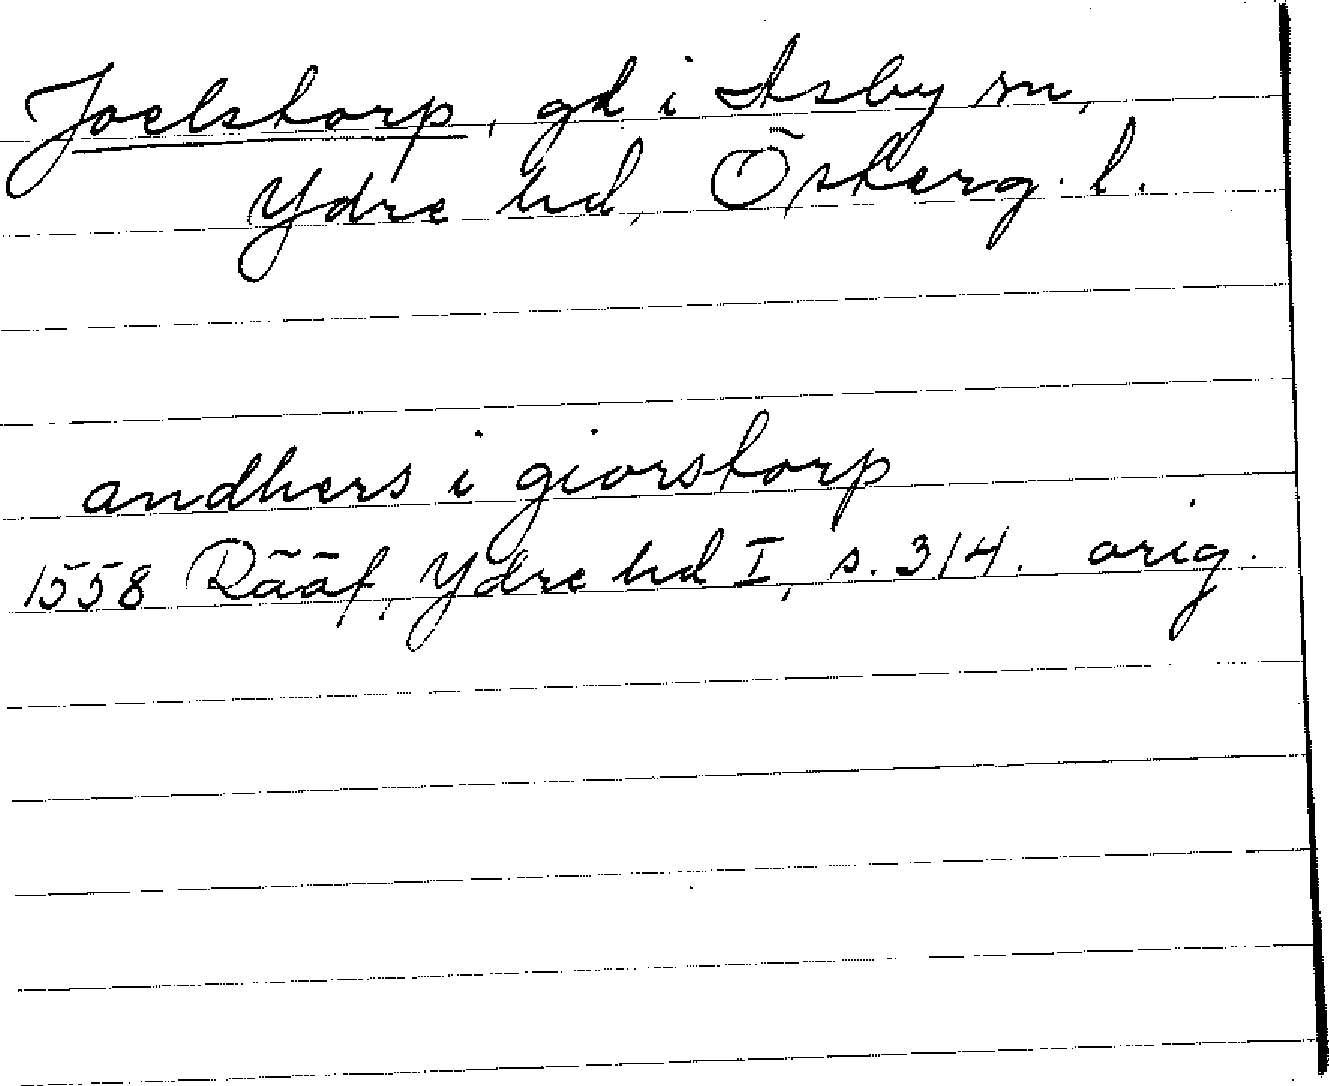 Joelstorp, gd i Asby sn,
Ydre hd, Österg. l.
andhers i giorstorp
1558 Rääf, Ydre hd I, s. 314. orig.